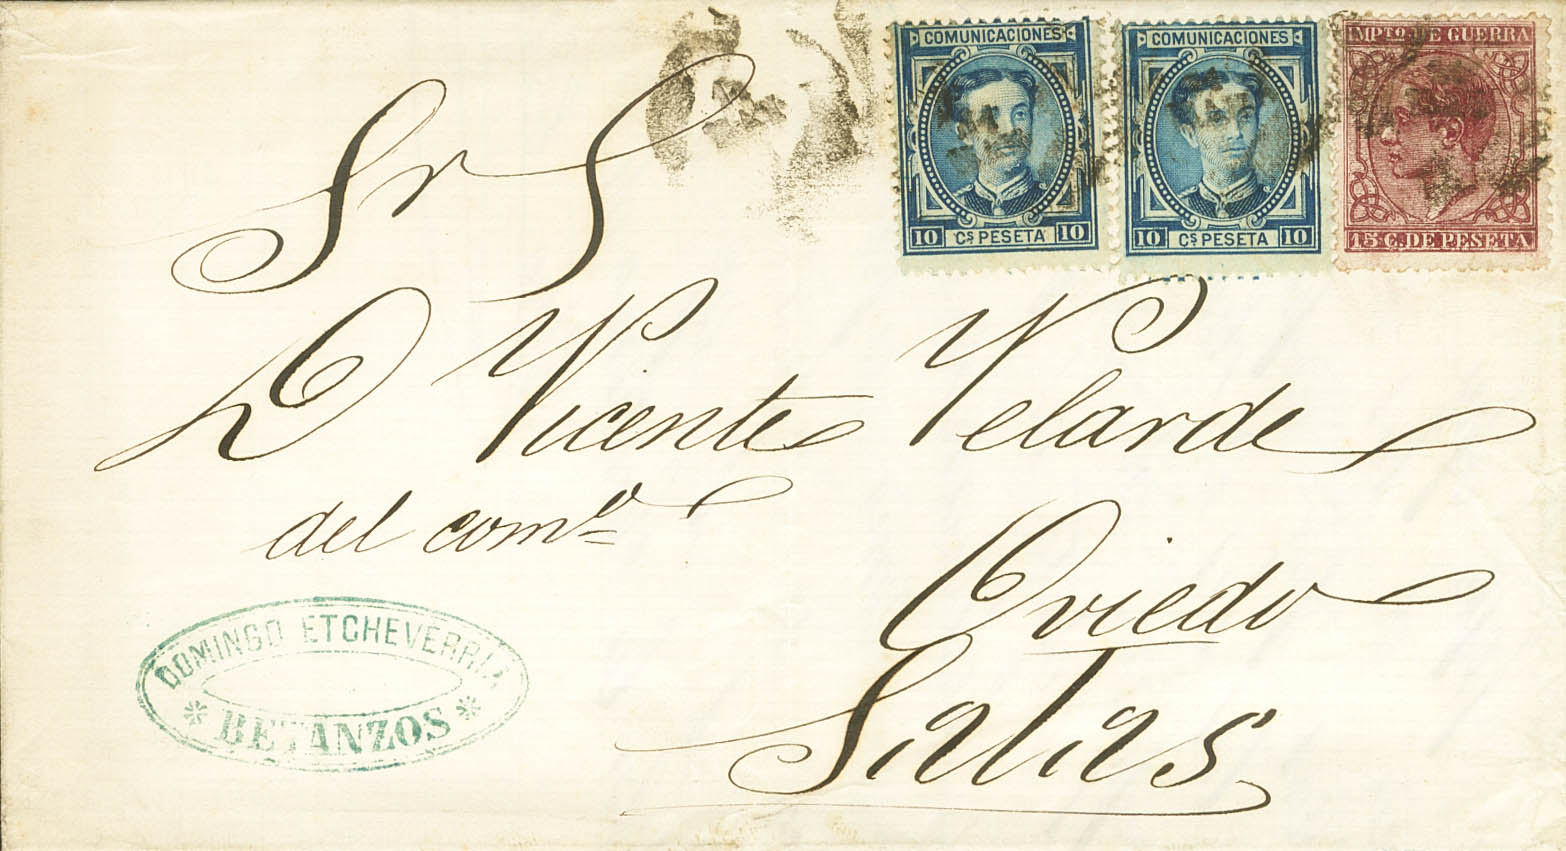 COMUNICACIONES
10 Cs PESETA 10
COMUNICACIONES
10 Cs PESETA 10
IMPTO DE GUERRA
15 C. DE PESETA
Sr S
D Vicente Velarde
del como
Oviedo
Salas
DOMINGO ETCHEVERRIA
* BETANZOS *